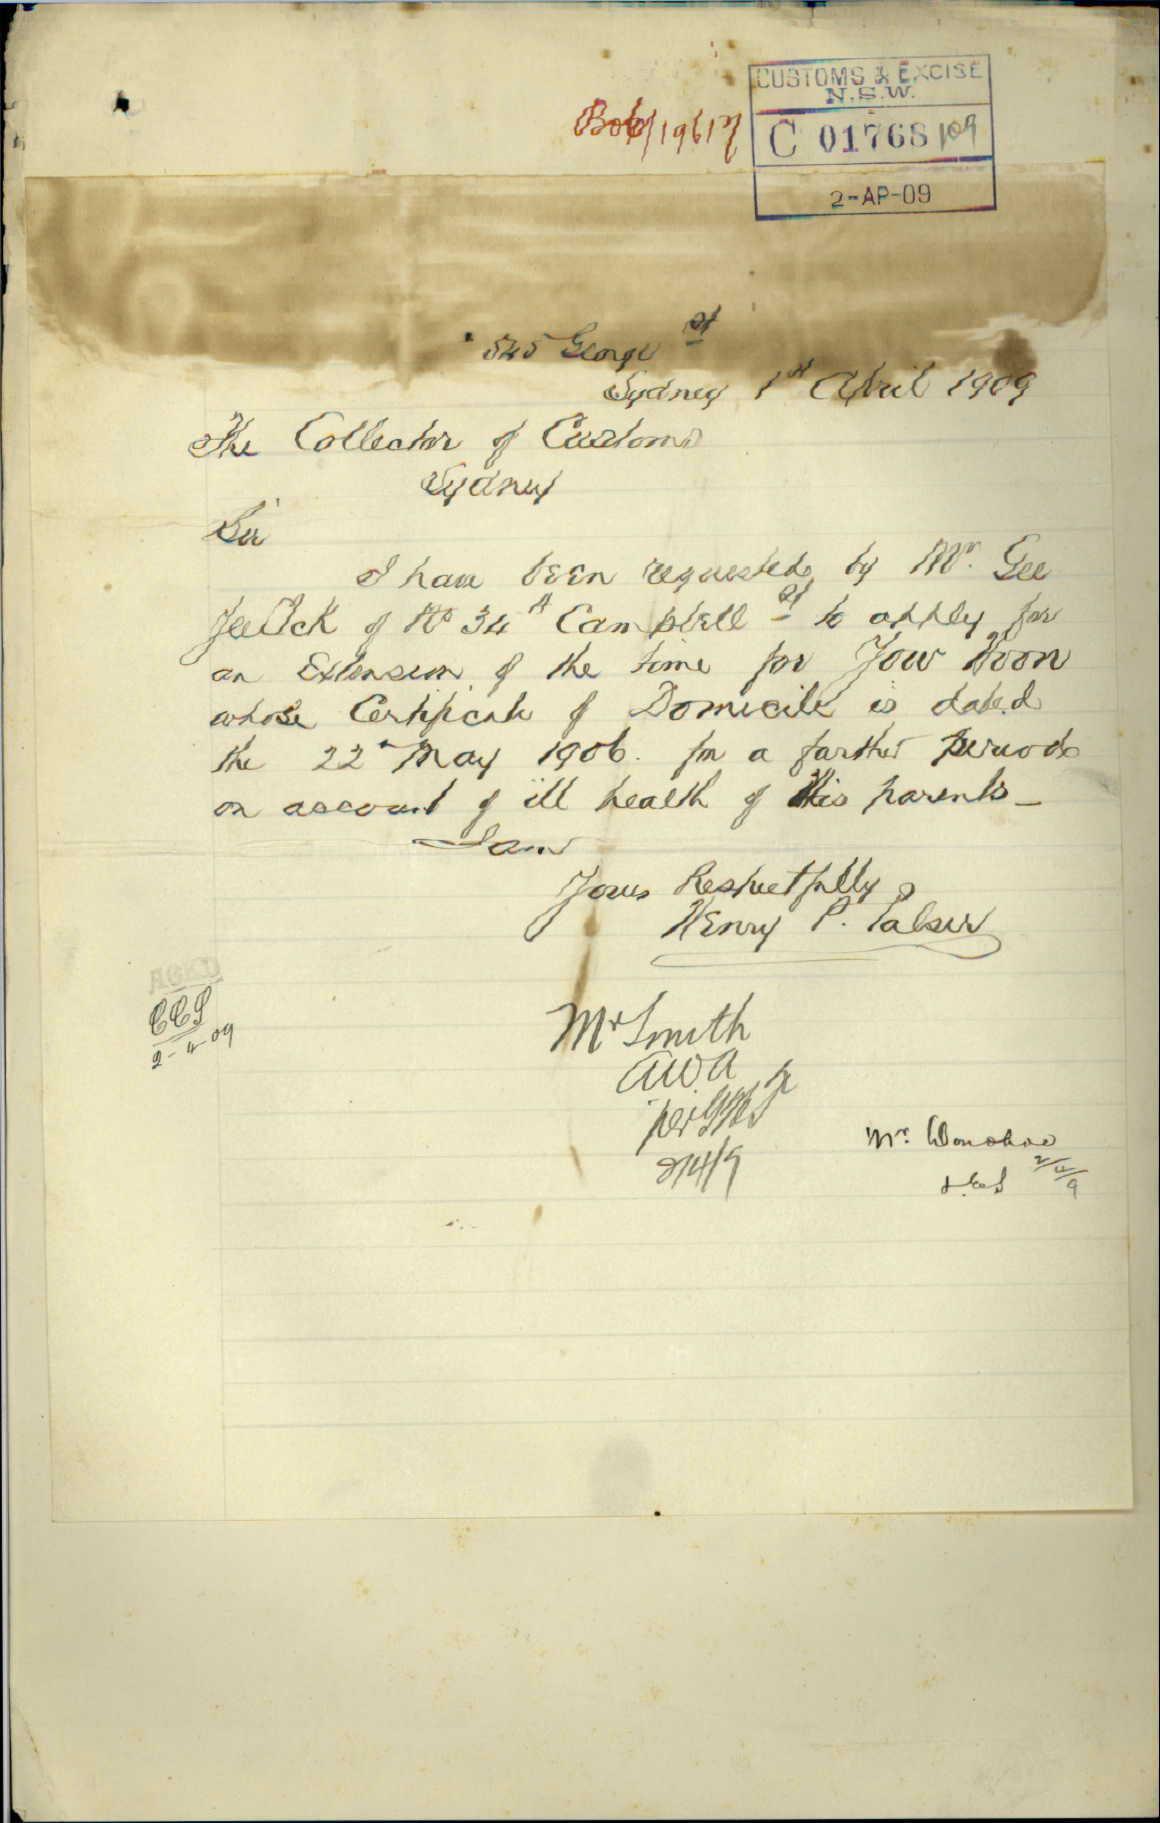 CUSTOMS & EXCISE
N.S.W.
C 01768/09
2-AP-09
545 George St
Sydney 1st April 1909
The Collector of Customs
Sydney
Sir
I have been requested by Mr. Gee
Jee Ack of No 34A Campbell St to apply for
an Extension of the time for Yow Hoon
whose Certificate of Domicile is dated
the 22n May 1906. for a farther period
on account of ill health of his parents_
I am
Yours Respectfully
Henry P. Palser
ACK'D
CCS
2-4-09
Mr Smith
AWA
per
2/4/9
Mr. Donohoe
2/4/9